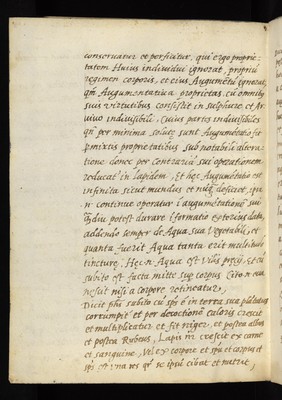 conseruatur et perficitur, qui ergo proprie-
tatem Huius indiuidui ignorat, propriũ
regimen corporis, et eius Augumẽtũ ignorat,
qm̃ Augumentatiua proprietas cũ omnib9
suis virtutibus consistit in sulphure et Ar
uiuo indiuisibili, Cuius partes indiuisibiles
qñ per minima solute sunt
proprietatibus sub notabile altera-
tione donec per contrariũ sui operationem
reducat in lapidem, Et hęc Augumẽtatio est
infinita sicut mundus et deficeret, qia
ñ continue operatur i augumẽtationẽ sui
potest durare
addendo semper de Aqua sua Vegetabili, et
quanta fuerit Aqua tanta erit multitudo
tincture, Hęc ñ Aqua est Vilis precij, Et cũ
subito est facta mitte sup corpus Cito ñ eua
nescit nisi a corpore retineatur,
Dicit cũ sp̃s ẽ in terra sua
corrumpit et per decoctionẽ caloris crescit
et multiplicatur et fit niger, et postea albus
et postea Rubeus, Lapis ñ crescit ex carne
et sanguine, Vel ex corpore et spũ et corpus et
sp̃s est una res qr̃ se ipsũ cibat et nutrit,